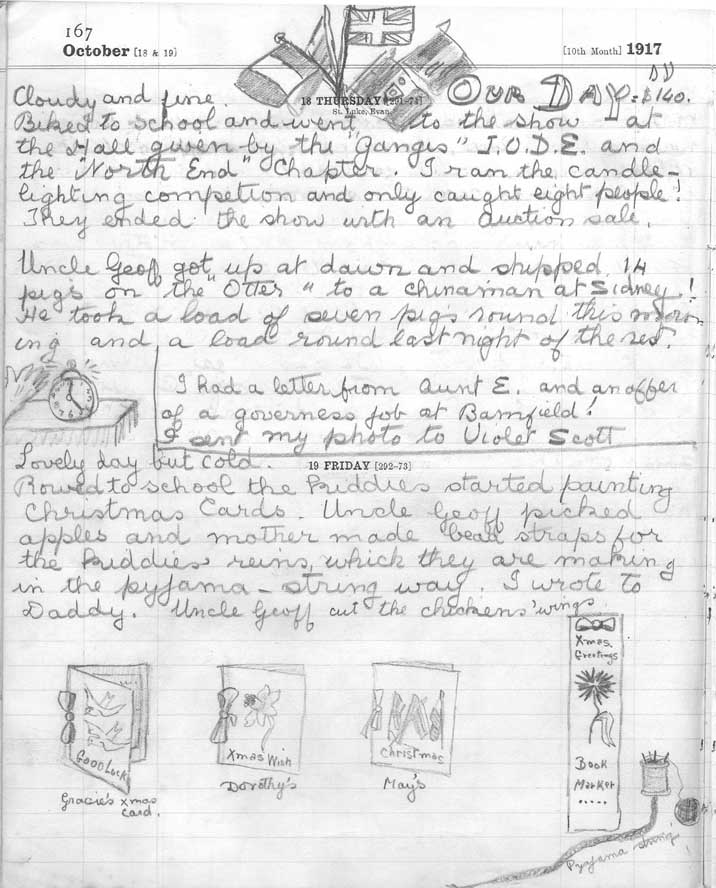 167
October [18 & 19] [10th Month] 1917
Cloudy and fine. 18 THURSDAY [291-74] OUR DAY = $140.
St. Luke, Evan.
Biked to school and went to the show at
the Hall given by the "Ganges" I.O.D.E. and
the "North End" Chapter. I ran the candle-
lighting competion and only caught eight people!
They ended the show with an auction sale.
Uncle Geoff got up at dawn and shipped 14
pigs on the "Otter" to a chinaman at Sidney!
He took a load of seven pigs round this morn
ing and a load round last night of the rest.
I had a letter from Aunt E. and an offer
of a governess job at Bamfield!
I sent my photo to Violet Scott
Lovely day but cold. 19 FRIDAY [292-73]
Rowed to school the kiddies started painting
Christmas Cards. Uncle Geoff picked
apples and mother made bead straps for
the kiddies' reins, which they are making
in the pyjama-string way. I wrote to
Daddy. Uncle Geoff cut the chickens' wings
GOOD LUCK
Gracie's xmas
card.
Xmas Wish
Dorothy's
Christmas
May's
Xmas
Greetings
Book
Marker
.....
Pyjama string!